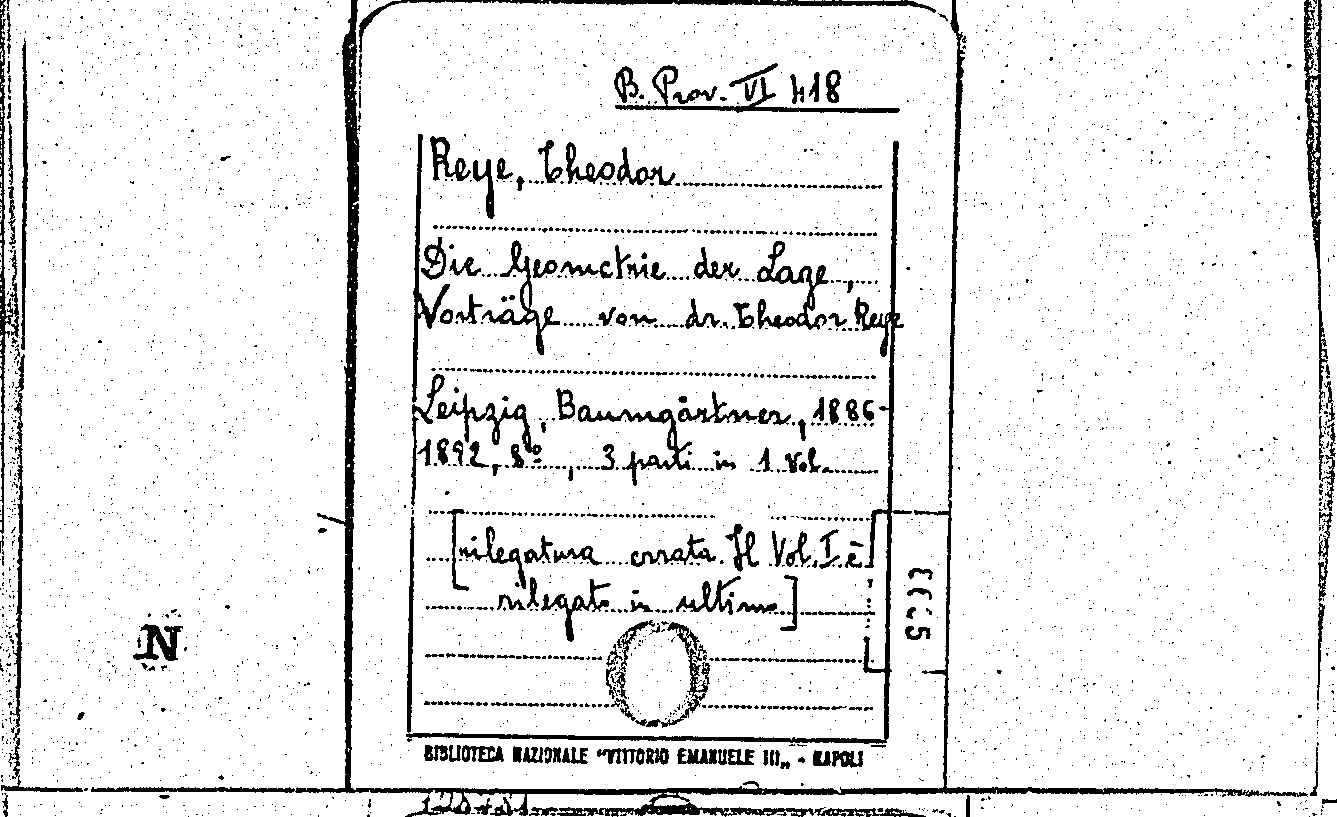 B. Prov. VI 418
Reye, Theodor
Die Geometrie der Lage,
Vorträge von dr. Theodor Reye
Leipzig, Baumgärtner, 1886-
1892, 8º, 3 parti in 1 vol.
[rilegatura errata. Il Vol. I è
rilegato in ultimo]
N
BIBLIOTECA NAZIONALE "VITTORIO EMANUELE III„ - NAPOLI